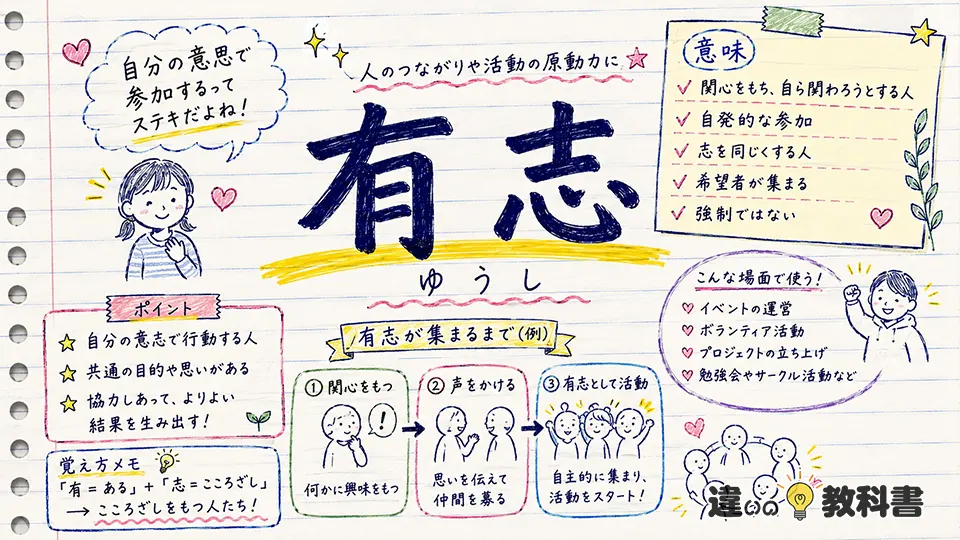 自分の意思で
参加するって
ステキだよね!
人のつながりや活動の原動力に
有志
ゆうし
意味
関心をもち、自ら関わろうとする人
自発的な参加
志を同じくする人
希望者が集まる
強制ではない
こんな場面で使う!
イベントの運営
ボランティア活動
プロジェクトの立ち上げ
勉強会やサークル活動など
ポイント
自分の意志で行動する人
共通の目的や思いがある
協力しあって、よりよい
結果を生み出す!
覚え方メモ
「有=ある」+「志=こころざし」
→ こころざしをもつ人たち!
有志が集まるまで(例)
① 関心をもつ
!
何かに興味をもつ
② 声をかける
思いを伝えて
仲間を募る
③ 有志として活動
自主的に集まり、
活動をスタート!
違いの教科書